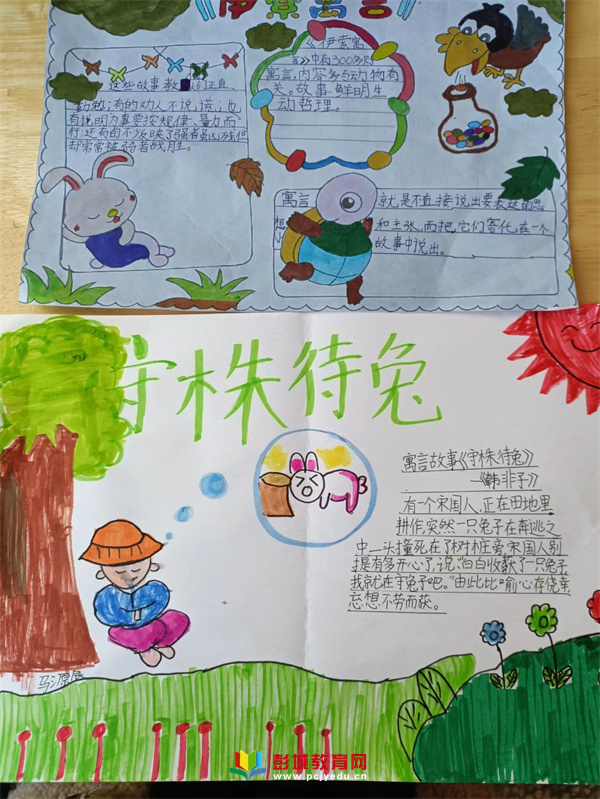 《伊索寓言》
这些故事教 们正直、
勤勉；有的劝人不说谎；也
有说明办事要按规律、量力而
行；还有的不少反映了强者虽凶残但
却常常被弱者战胜。
《伊索寓
言》中有300多则
寓言，内容多与动物有
关。故事鲜明生
动哲理。
寓言 就是不直接说出要表达的思
想 和主张，而把它们寄托在一个
小 故事中说出。
守株待兔
寓言故事《守株待兔》
—《韩非子》
有一个宋国人，正在田地里
耕作，突然一只兔子在奔逃之
中一头撞死在了树桩旁，宋国人别
提有多开心了，说："白白收获了一只兔子
我就在守兔子吧。"由此比喻心存侥幸
忘想不劳而获。
彭城教育网
www.pcjyedu.cn